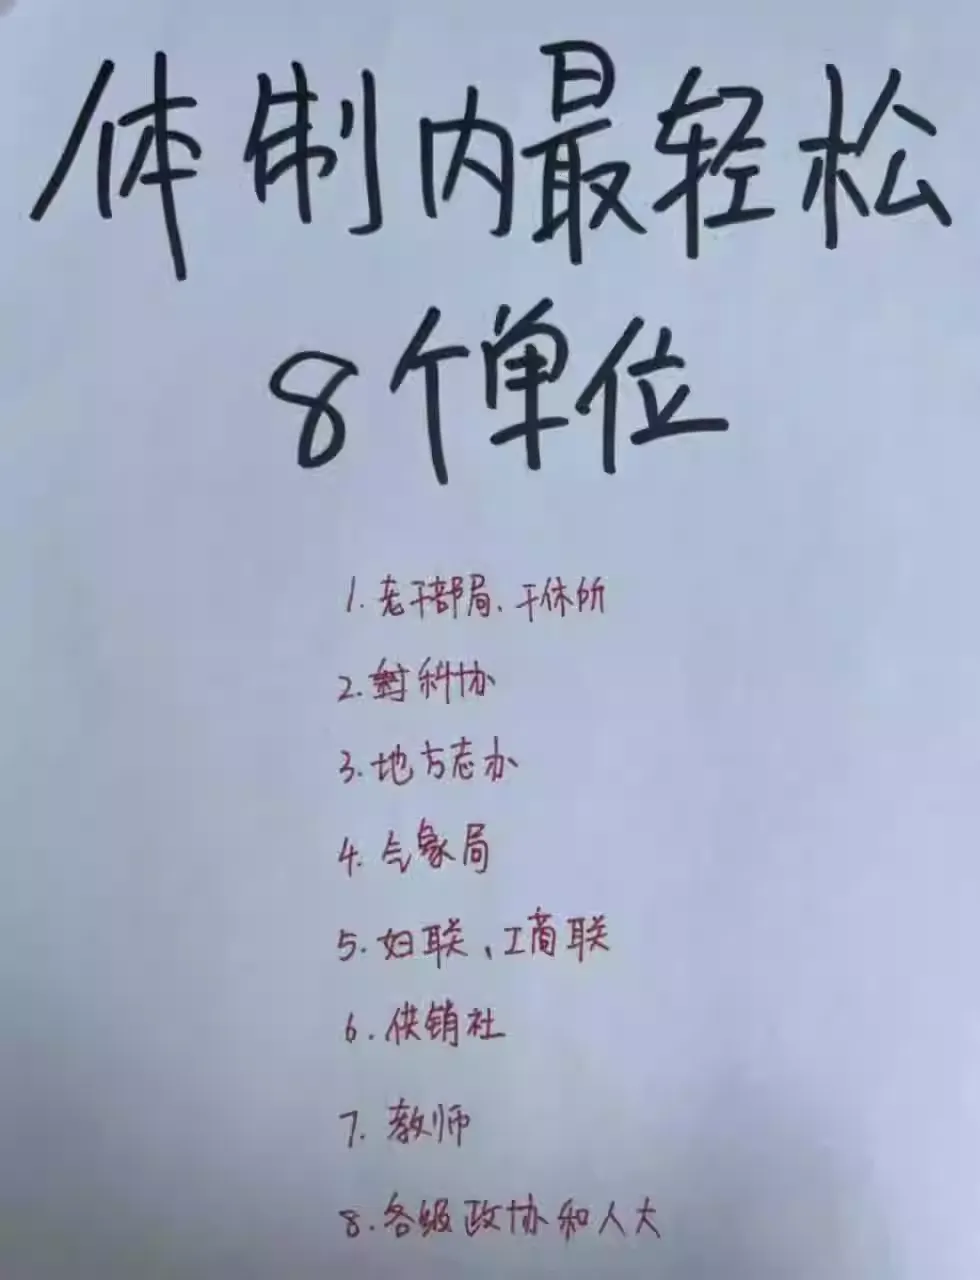 体制内最轻松
8个单位
1. 老干部局、干休所
2. 科协
3. 地方志办
4. 气象局
5. 妇联、工商联
6. 供销社
7. 教师
8. 各级政协和人大